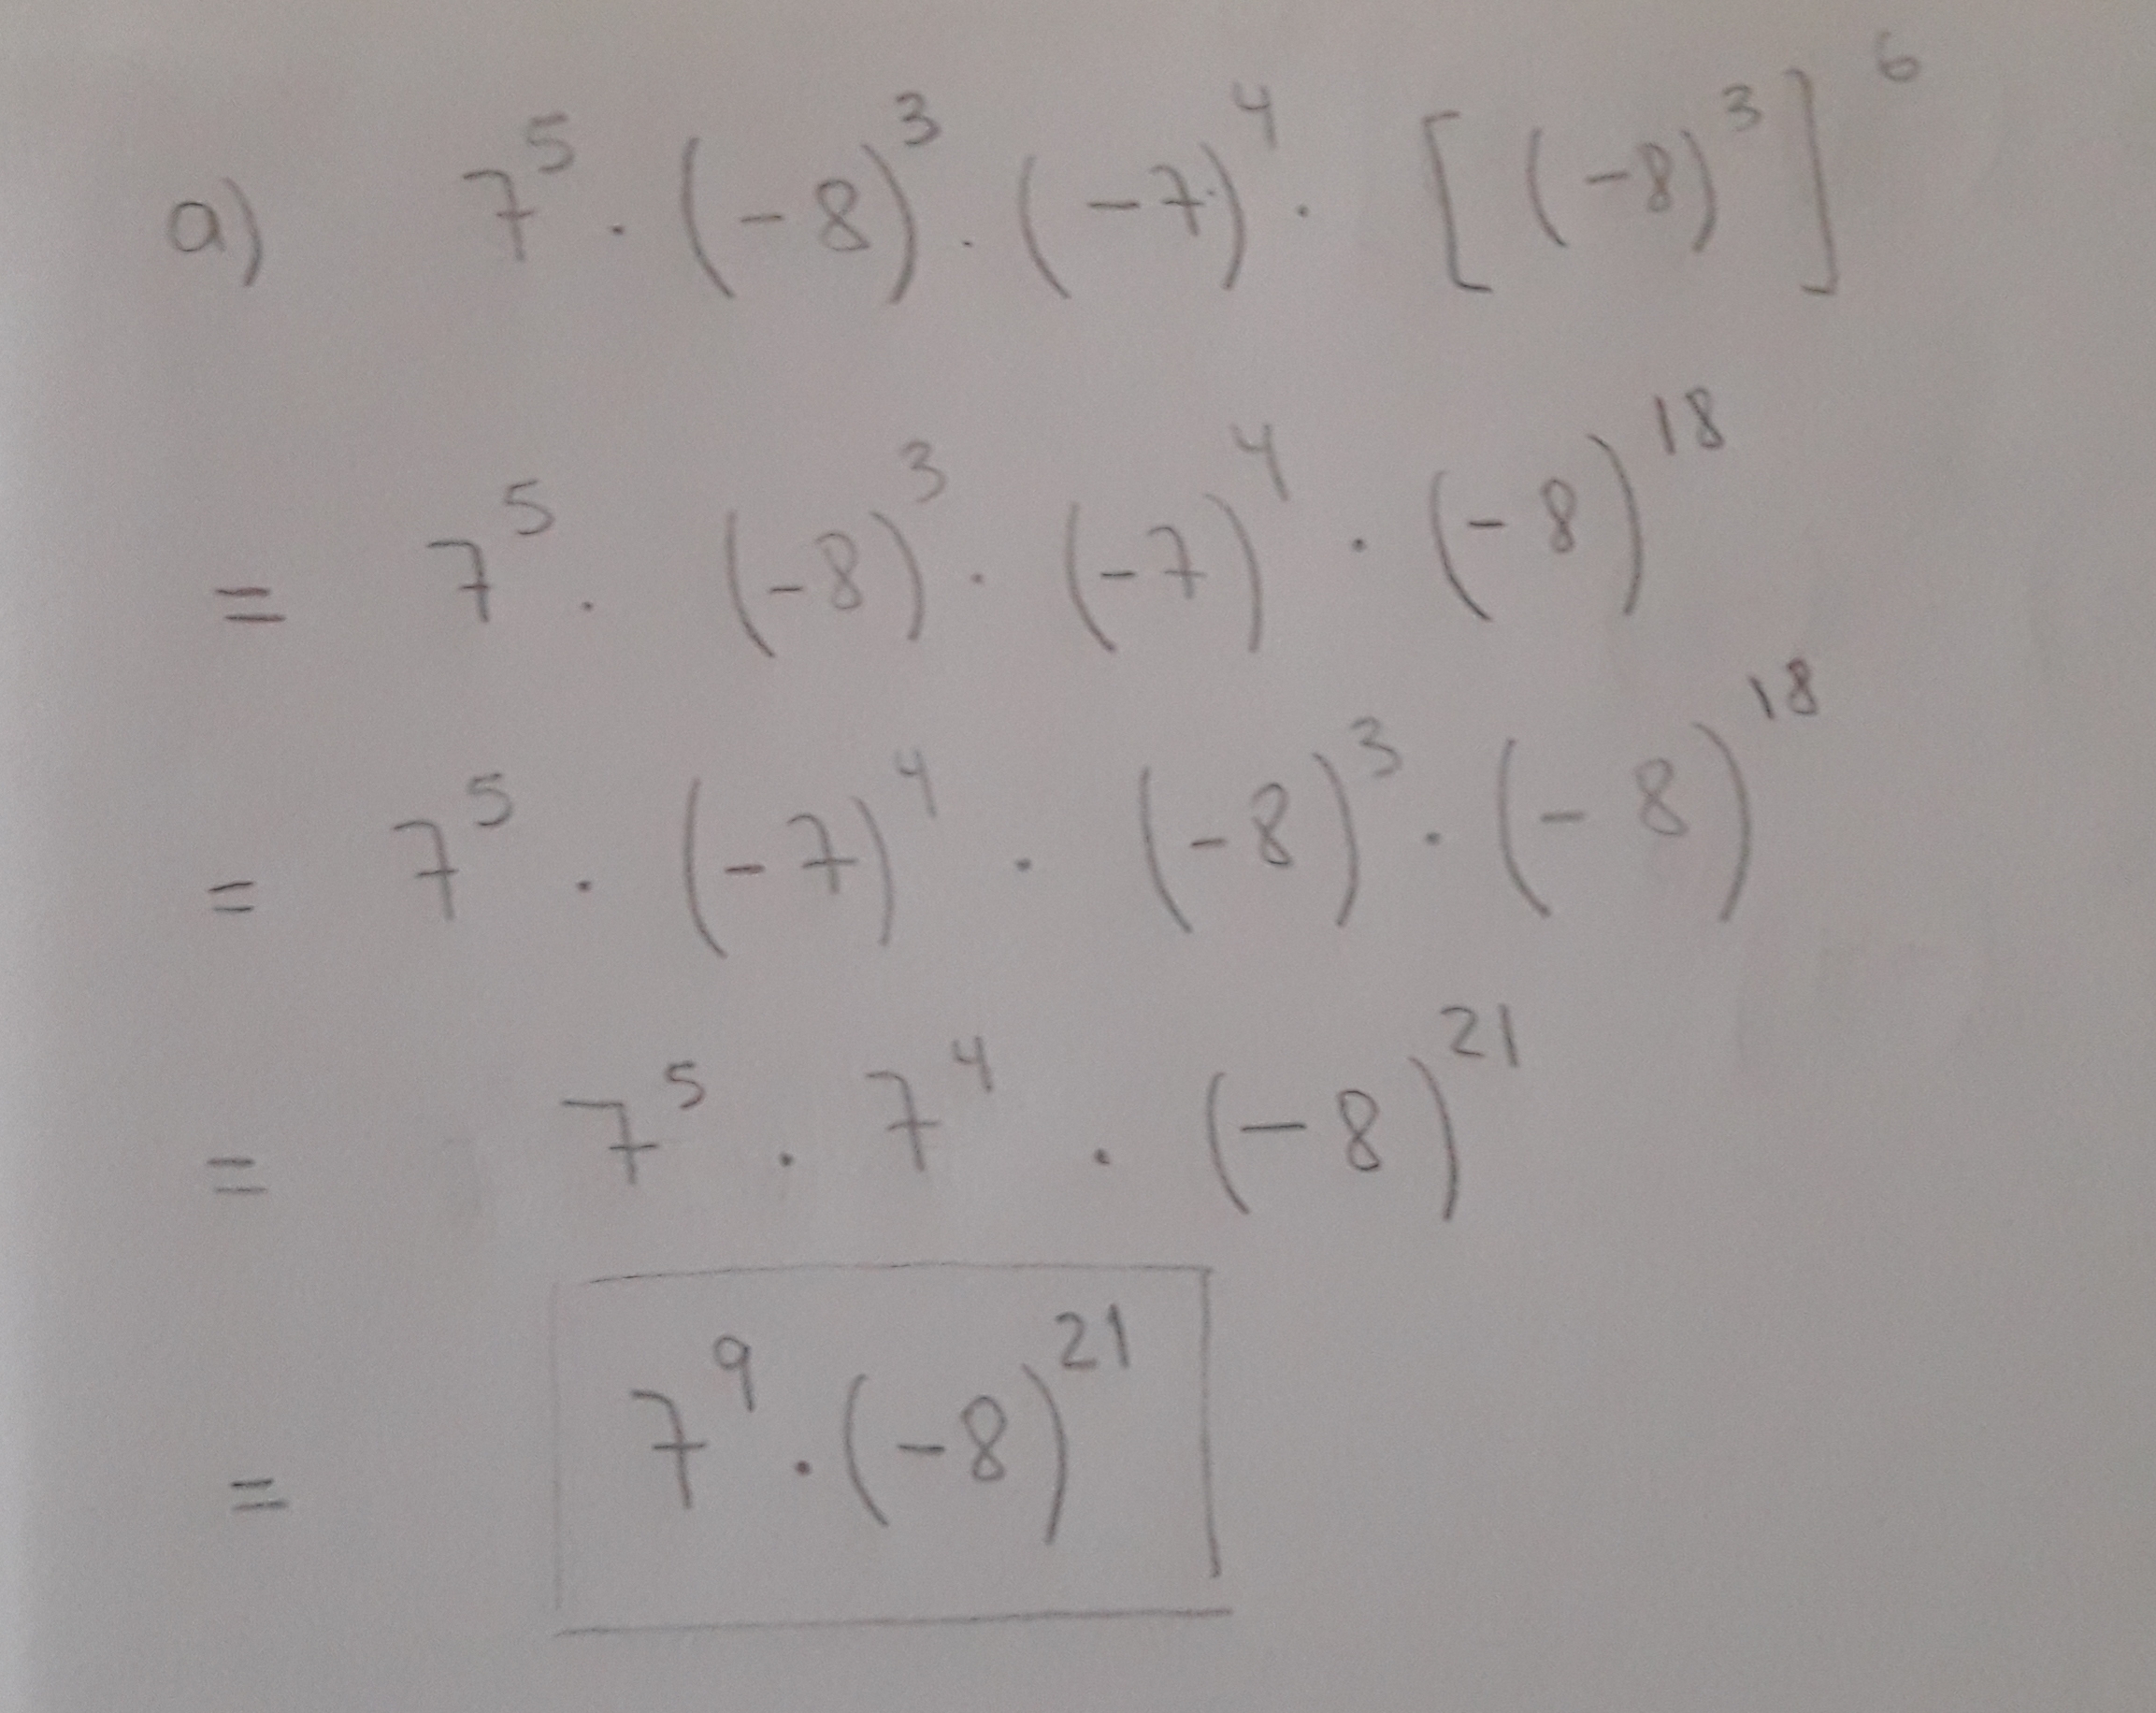 a) 7⁵ · (-8)³ · (-7)⁴ · [(-8)³]⁶
= 7⁵ · (-8)³ · (-7)⁴ · (-8)¹⁸
= 7⁵ · (-7)⁴ · (-8)³ · (-8)¹⁸
= 7⁵ · 7⁴ · (-8)²¹
= 7⁹ · (-8)²¹